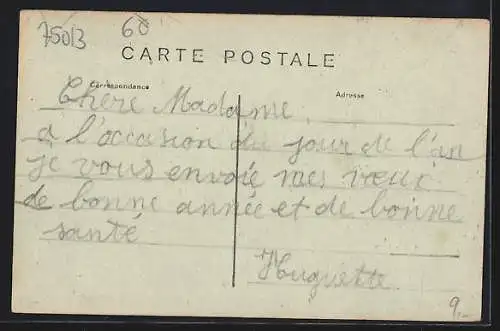 75013
60
CARTE POSTALE
Correspondance
Adresse
Chère Madame,
à l'occasion du jour de l'an
je vous envoie mes vœux
de bonne année et de bonne
santé
Huguette
9.-